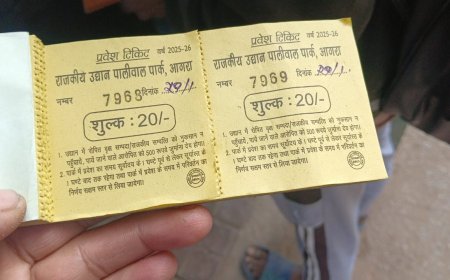 प्रवेश टिकिट वर्ष 2025-26
राजकीय उद्यान पालीवाल पार्क, आगरा
नम्बर 7968 दिनांक
शुल्क : 20/-
1. उद्यान में रोपित वृक्ष सम्पदा/राजकीय सम्पत्ति को नुकसान न
पहुँचायें, पाये जाने वाले आरोपित को 500 रूपये जुर्माना देय होगा।
2. पार्क में प्रवेश का समय सूर्योदय के 1 घण्टे पूर्व से लेकर सूर्यास्त के
1 घण्टे बाद तक रहेगा तथा पार्क में प्रवेश के समय में परिवर्तन का
निर्णय सक्षम स्तर से लिया जायेगा।
प्रवेश टिकिट वर्ष 2025-26
राजकीय उद्यान पालीवाल पार्क, आगरा
नम्बर 7969 दिनांक
शुल्क : 20/-
1. उद्यान में रोपित वृक्ष सम्पदा/राजकीय सम्पत्ति को नुकसान न
पहुँचायें, पाये जाने वाले आरोपित को 500 रूपये जुर्माना देय होगा।
2. पार्क में प्रवेश का समय सूर्योदय के 1 घण्टे पूर्व से लेकर सूर्यास्त के
1 घण्टे बाद तक रहेगा तथा पार्क में प्रवेश के समय में परिवर्तन का
निर्णय सक्षम स्तर से लिया जायेगा।